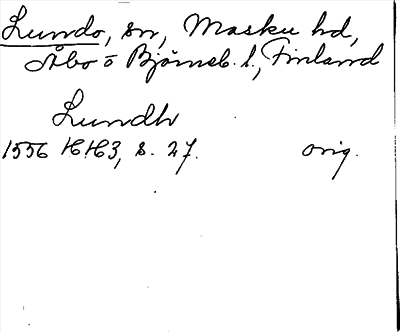 Lundo, sn, Masku hd,
Åbo o Björneb. l., Finland
Lundh
1556 HH3, s. 27. orig.